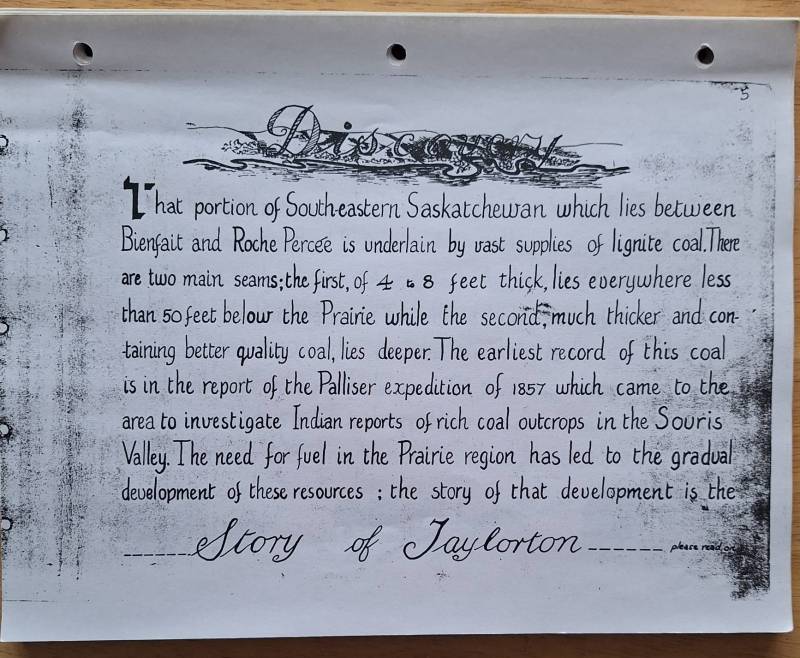 5
Discovery
That portion of South-eastern Saskatchewan which lies between
Bienfait and Roche Percée is underlain by vast supplies of lignite coal. There
are two main seams; the first, of 4 to 8 feet thick, lies everywhere less
than 50 feet below the Prairie while the second, much thicker and con-
-taining better quality coal, lies deeper. The earliest record of this coal
is in the report of the Palliser expedition of 1857 which came to the
area to investigate Indian reports of rich coal outcrops in the Souris
Valley. The need for fuel in the Prairie region has led to the gradual
development of these resources ; the story of that development is the
______Story of Taylorton______ please read on